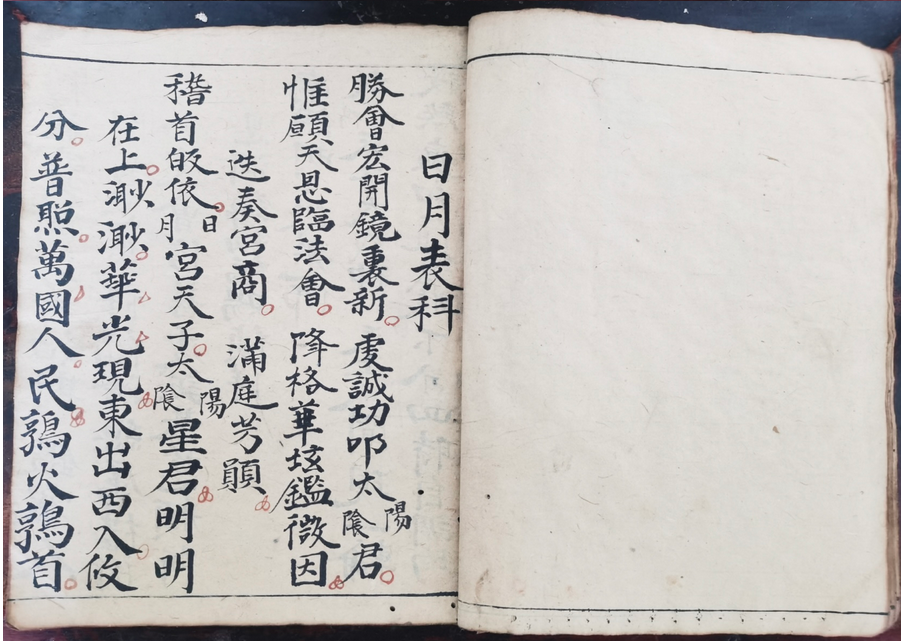 日月表科
勝會宏開鏡裏新 虔誠功叩太陽隂君
惟願天恩臨法會 降格華坛鑑微因
迭奏宮商 滿庭芳
稽首皈依日月宮天子太陽隂星君明明
在上渺渺華光現東出西入攸
分普照萬國人民鶉火鶉首